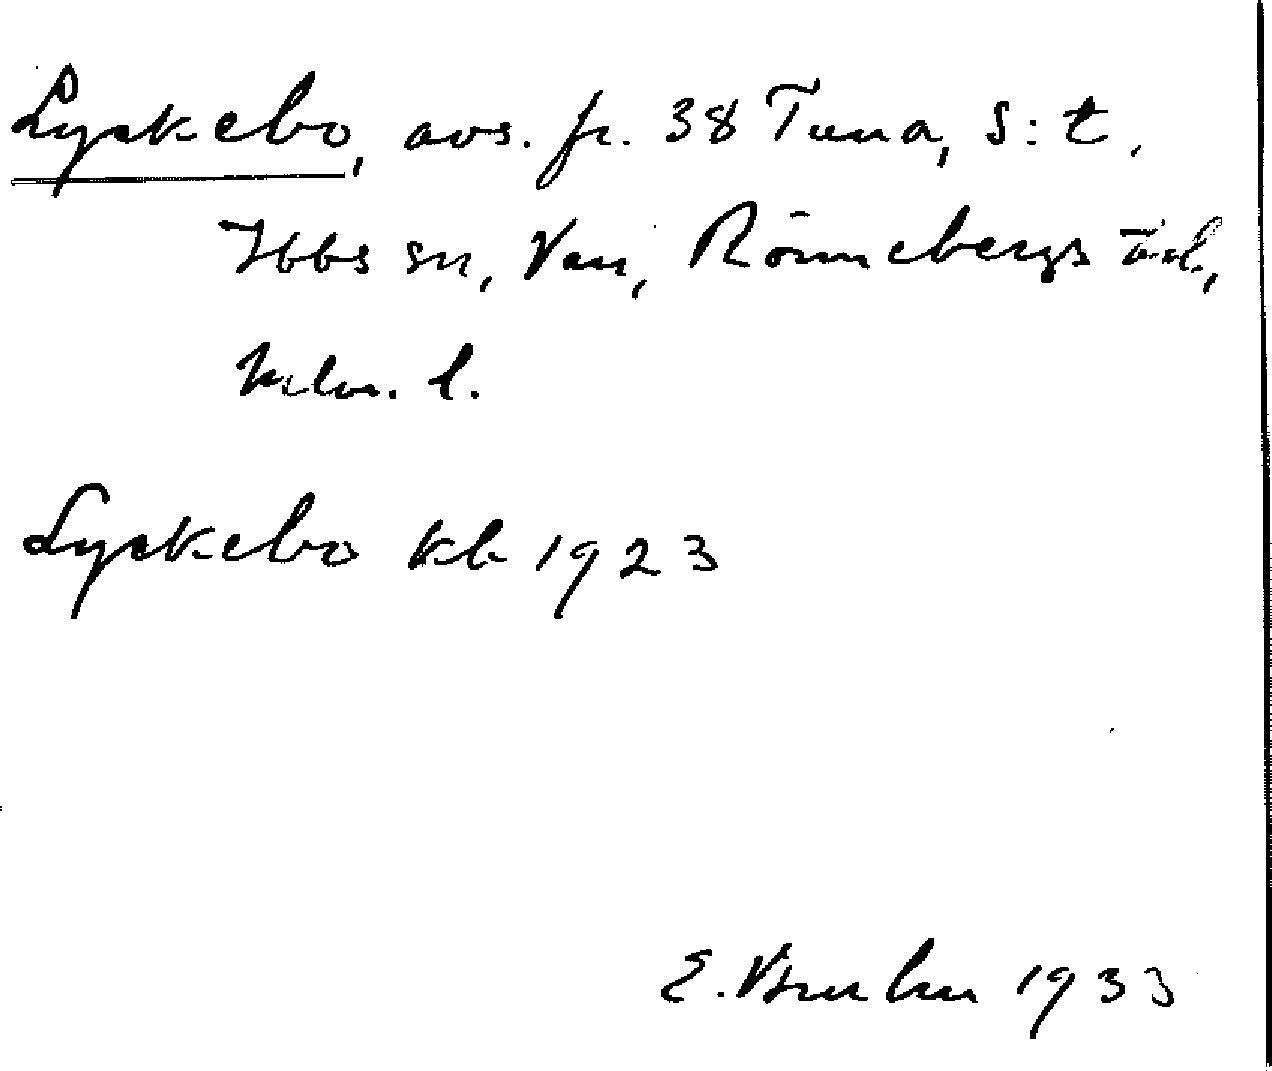 Lyckebo, avs. fr. 38 Tuna, S:t
Ibbs sn, Ven, Rönnebergs hd,
Mlm. l.
Lyckebo kb 1923
E. 1933